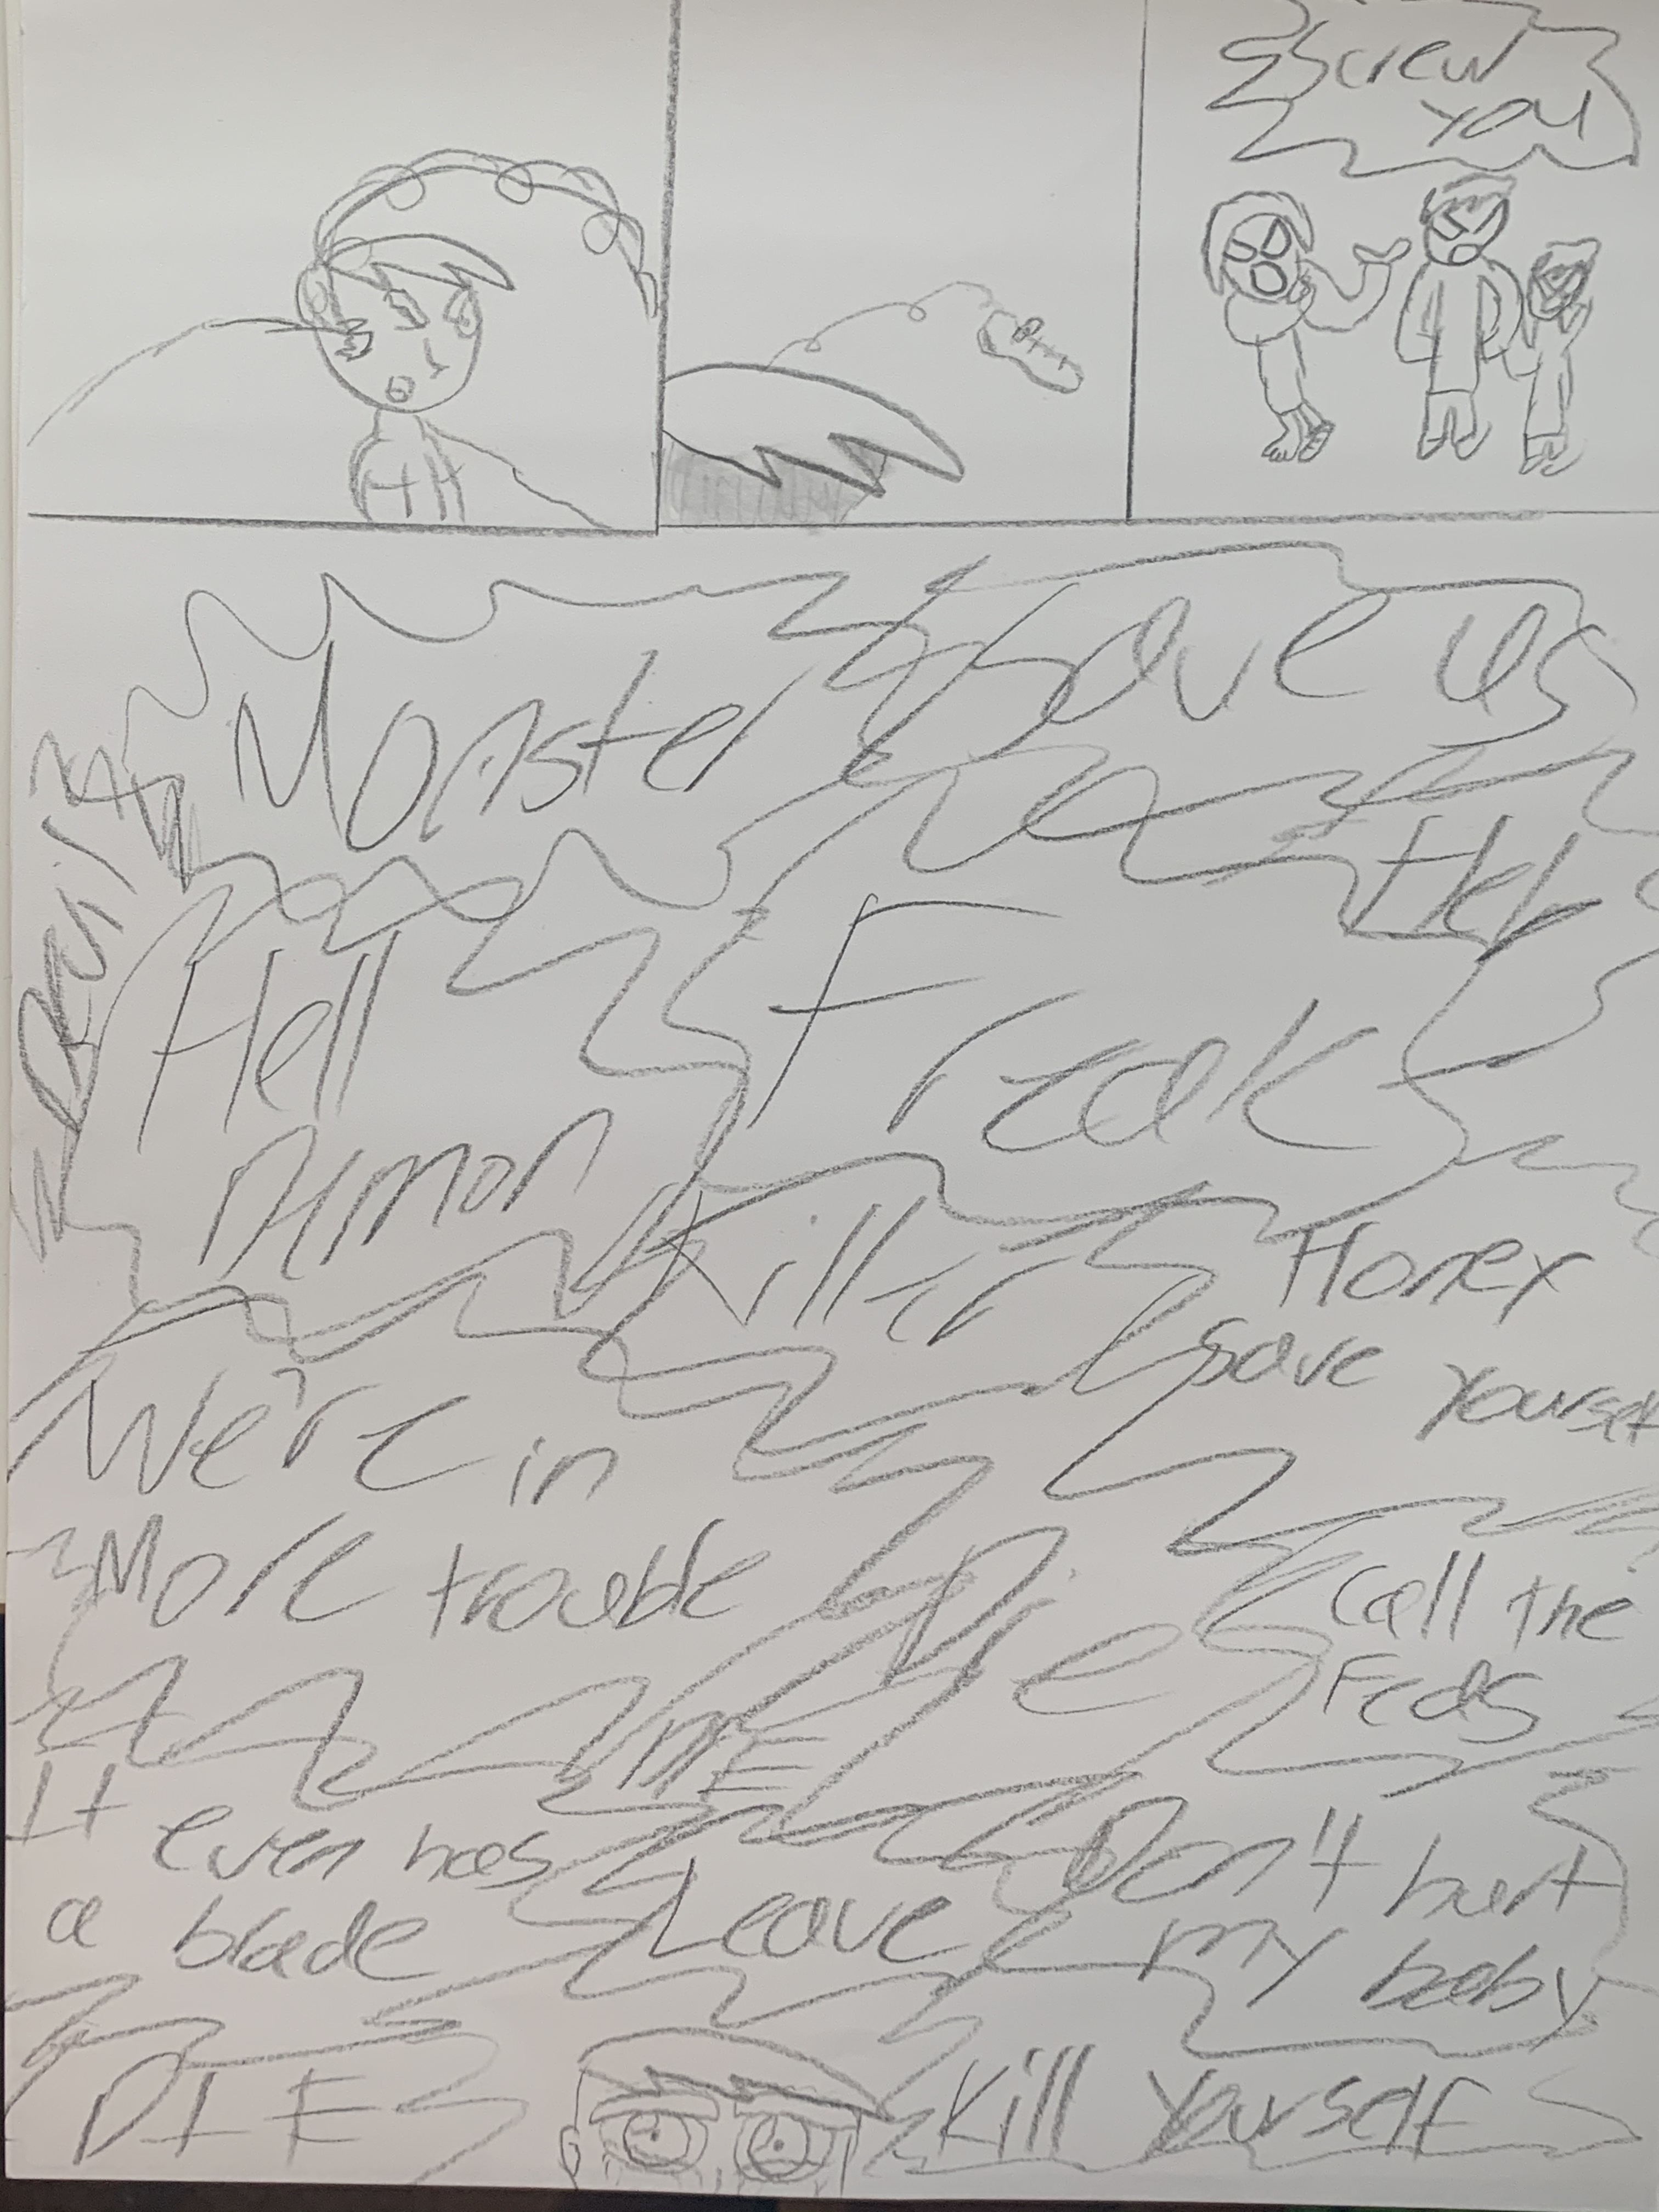 Screw
you
Monster
Save us
Devil
Help
Hell
Freak
Demon
Killer
Honey
save yourself
We're in
More trouble
Die
Call the
Feds
DIE
It even has
a blade
Leave
Don't hurt
my baby
DIE
Kill Yourself